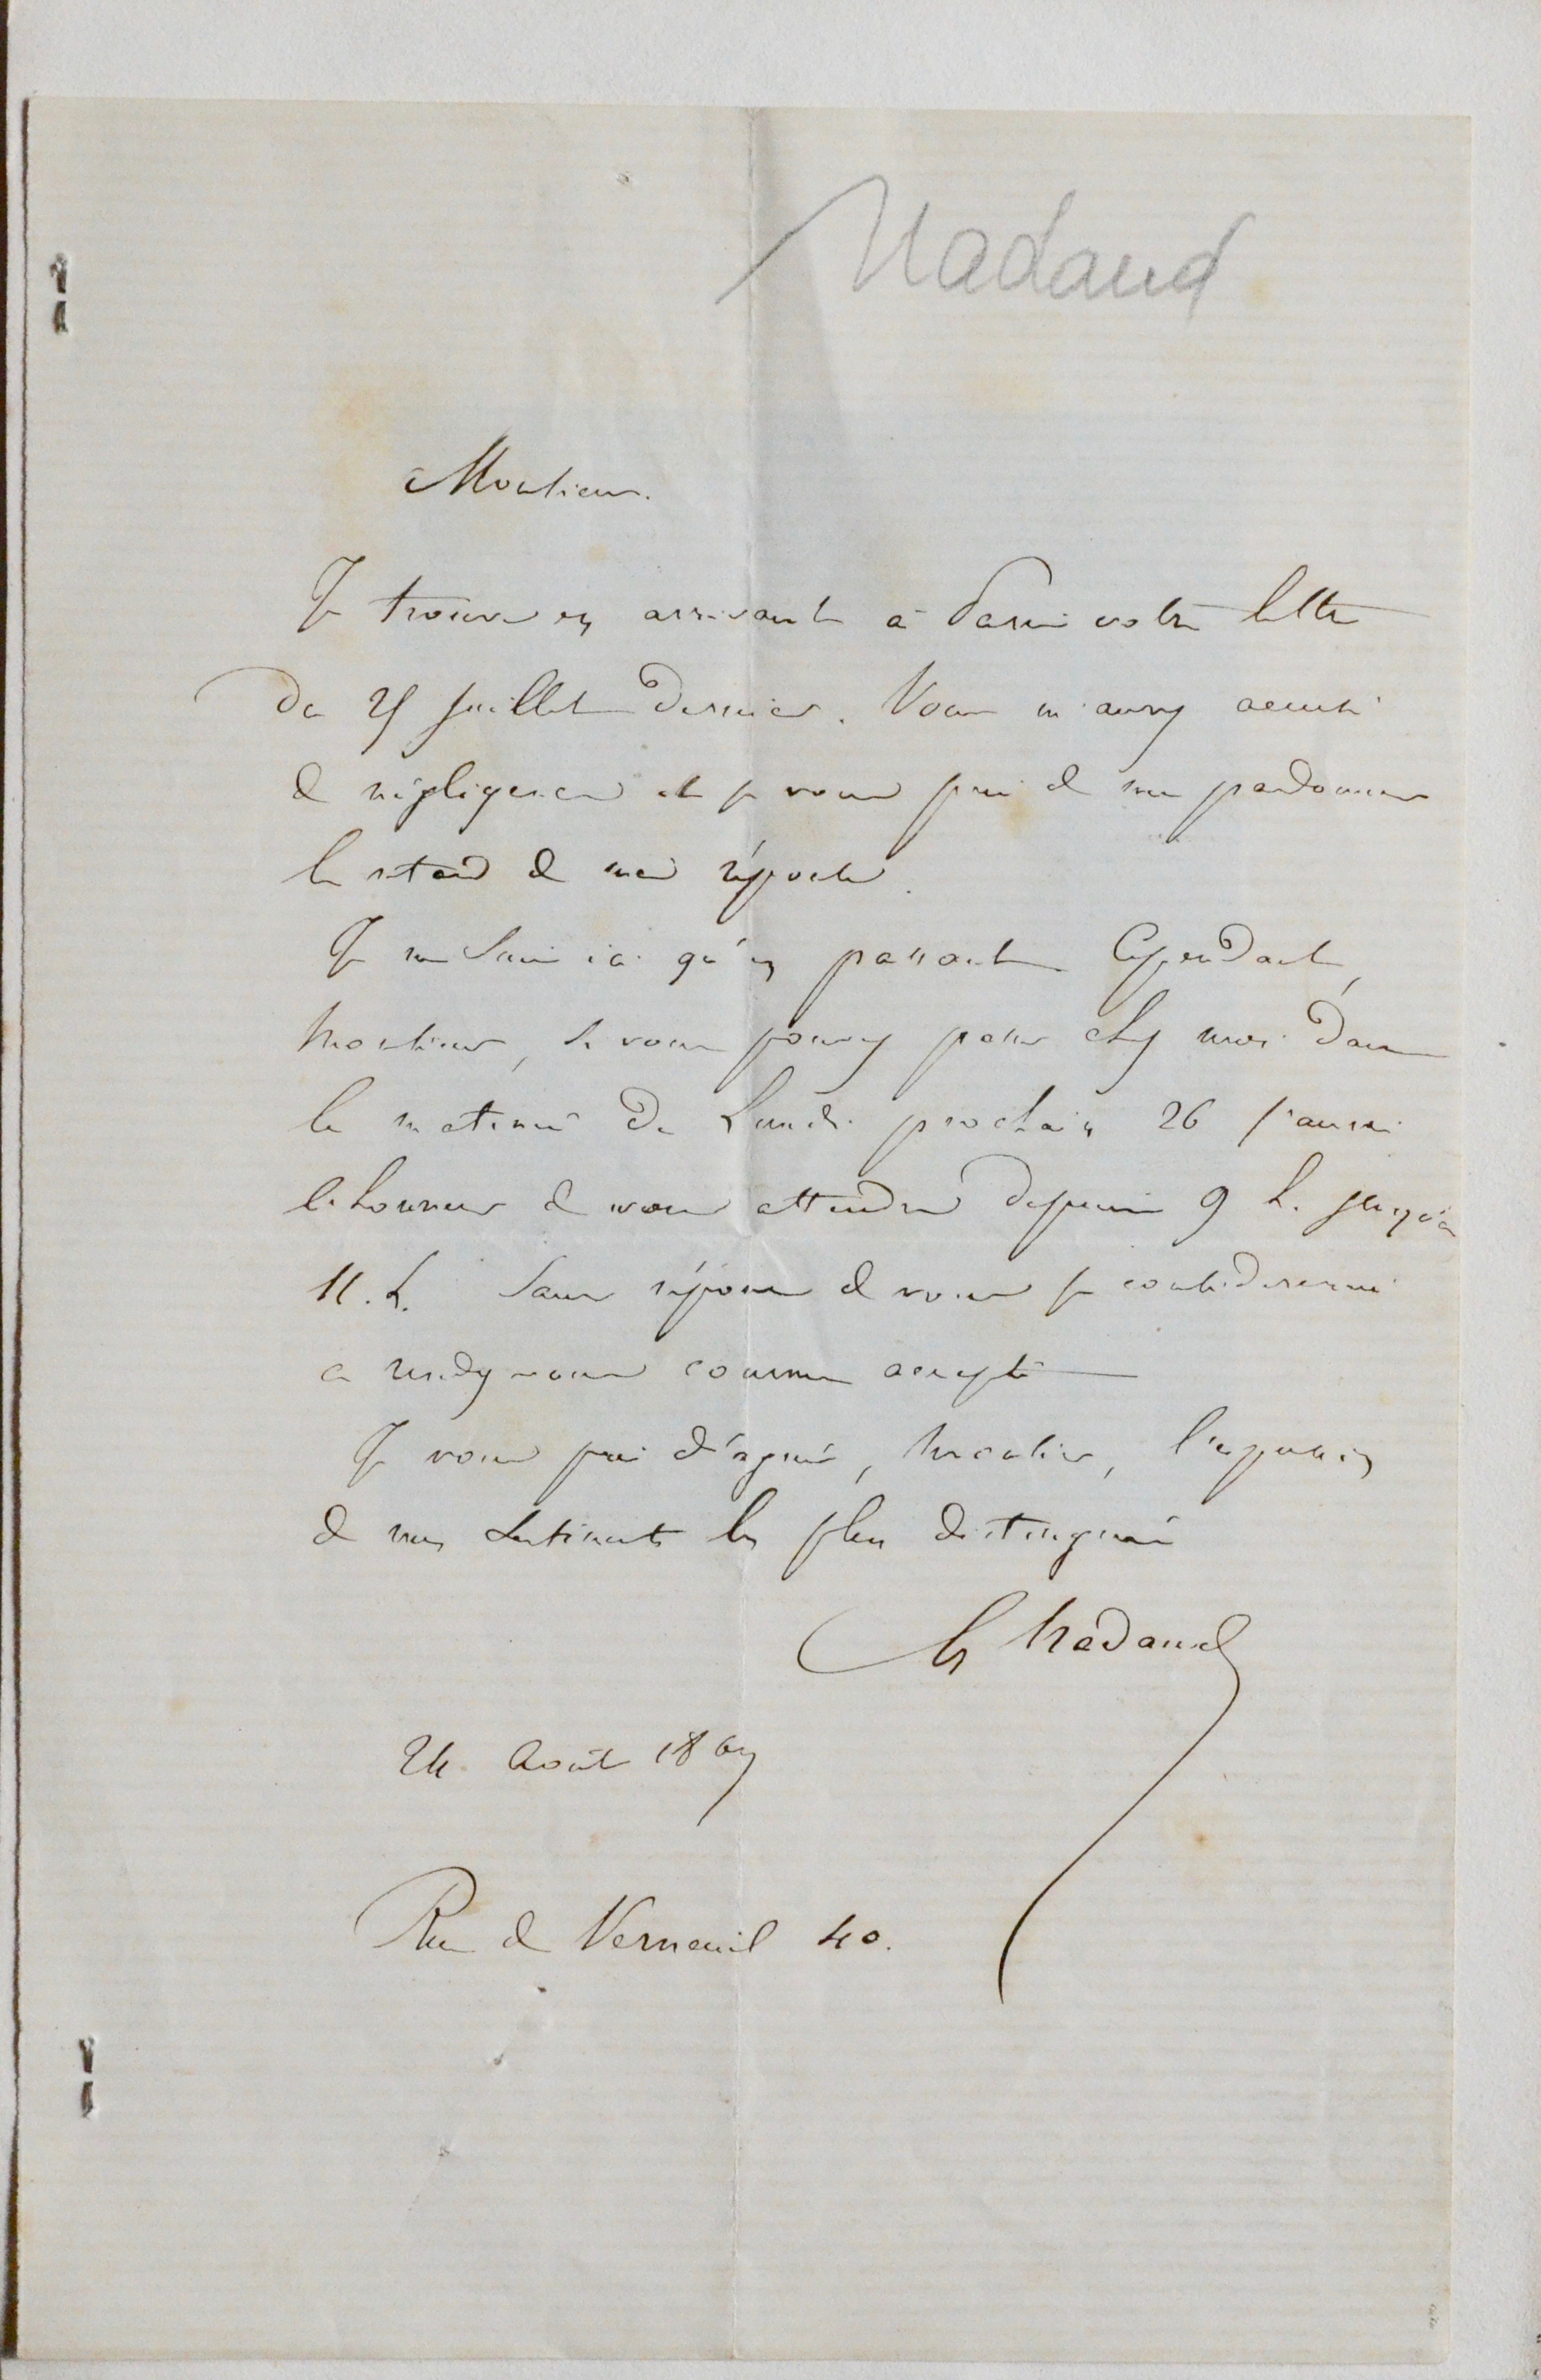 Nadaud
Monsieur.
Je trouve en arrivant à Paris votre lettre
du 25 juillet dernier. Vous m'aurez accusé
de négligence et je vous prie de me pardonner
le retard de ma réponse.
Je ne suis ici qu'en passant. Cependant,
Monsieur, si vous pouvez passer chez moi dans
la matinée de Lundi prochain 26 j'aurai
l'honneur de vous attendre depuis 9 h. jusqu'à
11. h. Sans réponse de vous je considérerai
ce rendez vous comme accepté
Je vous prie d'agréer, Monsieur, l'expression
de mes sentiments les plus distingués
Nadaud
24 Août 1867
Rue de Verneuil 40.